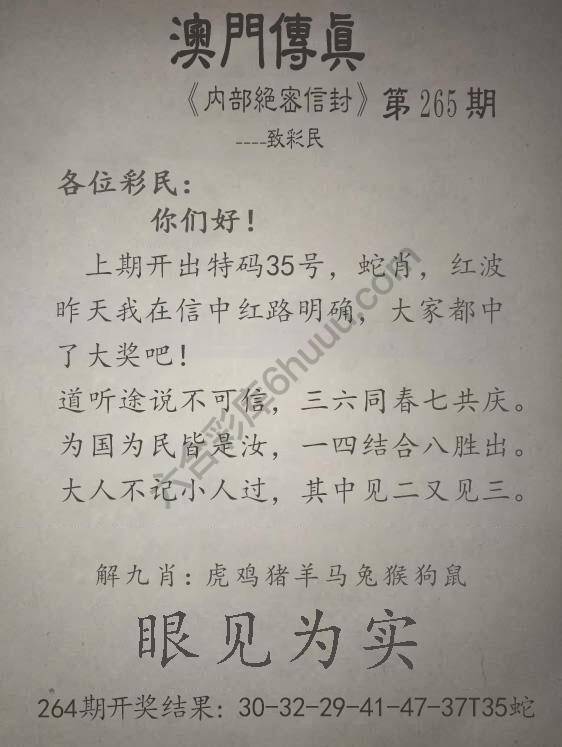 澳門傳真
《内部絕密信封》第265期
----致彩民
各位彩民：
你们好！
上期开出特码35号，蛇肖，红波
昨天我在信中红路明确，大家都中
了大奖吧！
道听途说不可信，三六同春七共庆。
为国为民皆是汝，一四结合八胜出。
大人不记小人过，其中见二又见三。
解九肖：虎鸡猪羊马兔猴狗鼠
眼见为实
264期开奖结果：30-32-29-41-47-37T35蛇
六合彩库6huuu.com